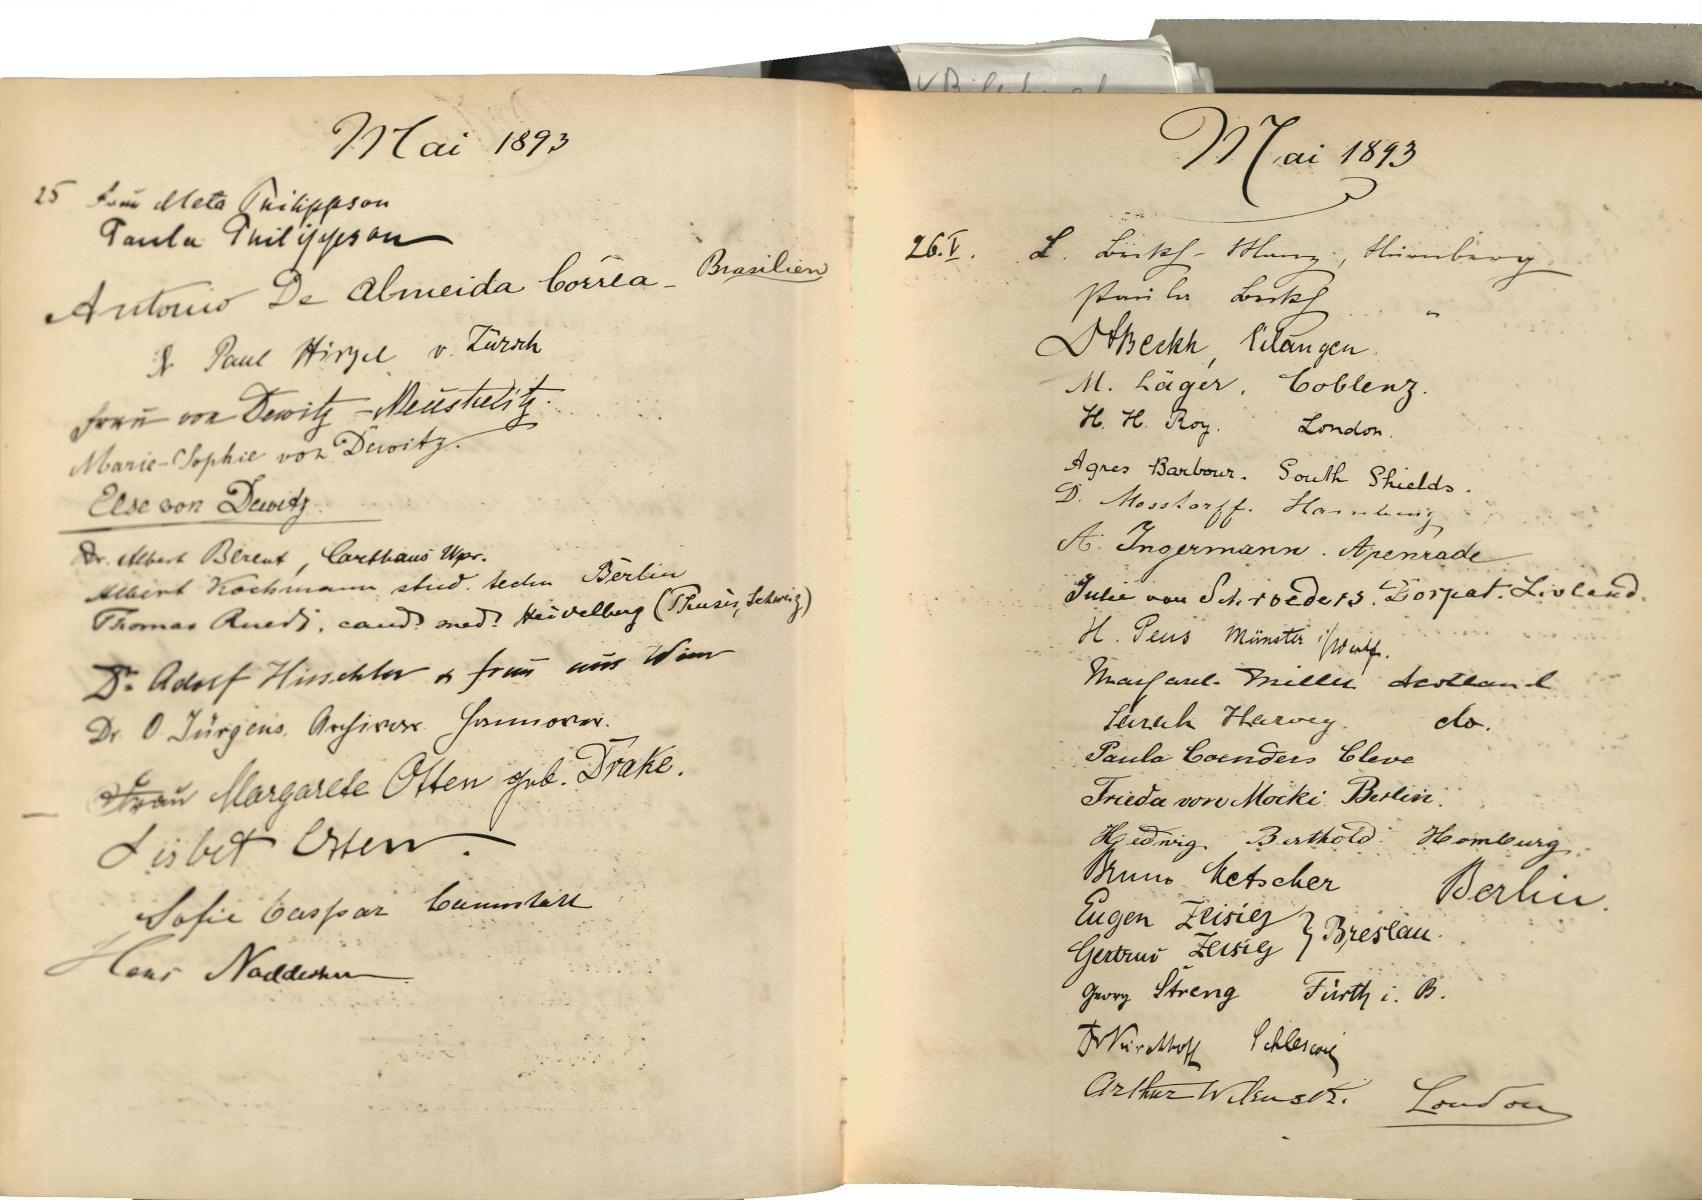 Mai 1893
25 Frau Meta Philippson
Paula Philippson
Antonio De Almeida Corrêa - Brasilien
Paul Hirzel v. Zürich
Frau von Dewitz - Neustrelitz.
Marie-Sophie von Dewitz.
Else von Dewitz.
Dr. Albert Berent, Carthaus Wpr.
Albert Kochmann stud. techn Berlin
Thomas Ruedi, cand. med. Heidelberg (Thusis, Schweiz)
Dr. Adolf Hirschler & Frau aus Wien
Dr. O Jürgens, Archivar Hannover.
Frau Margarete Otten geb. Drake.
Lisbet Otten.
Sofie Caspar Cannstatt
Hans
Mai 1893
26.V. L. Beckh - , Nürnberg
Paula Beckh "
Dr Beckh, Erlangen.
M. Läger, Coblenz.
H. H. Roy. London.
Agnes Barbour. South Shields.
D. Mosstorff. Hamburg
A. Ingermann. Apenrade
Julie von Schroeders. Dorpat. Livland.
H. Peus Münster i/Westf.
Margaret Miller Scotland
Sarah Harvey. do.
Paula Coenders Cleve
Frieda von Mocki Berlin.
Hedwig Berthold Homburg.
Bruno Metscher Berlin.
Eugen Zeisig } Breslau.
Gertrud Zeisig
Georg Streng Fürth i. B.
Dr Kirchhoff Schleswig
Arthur Wilenski. London